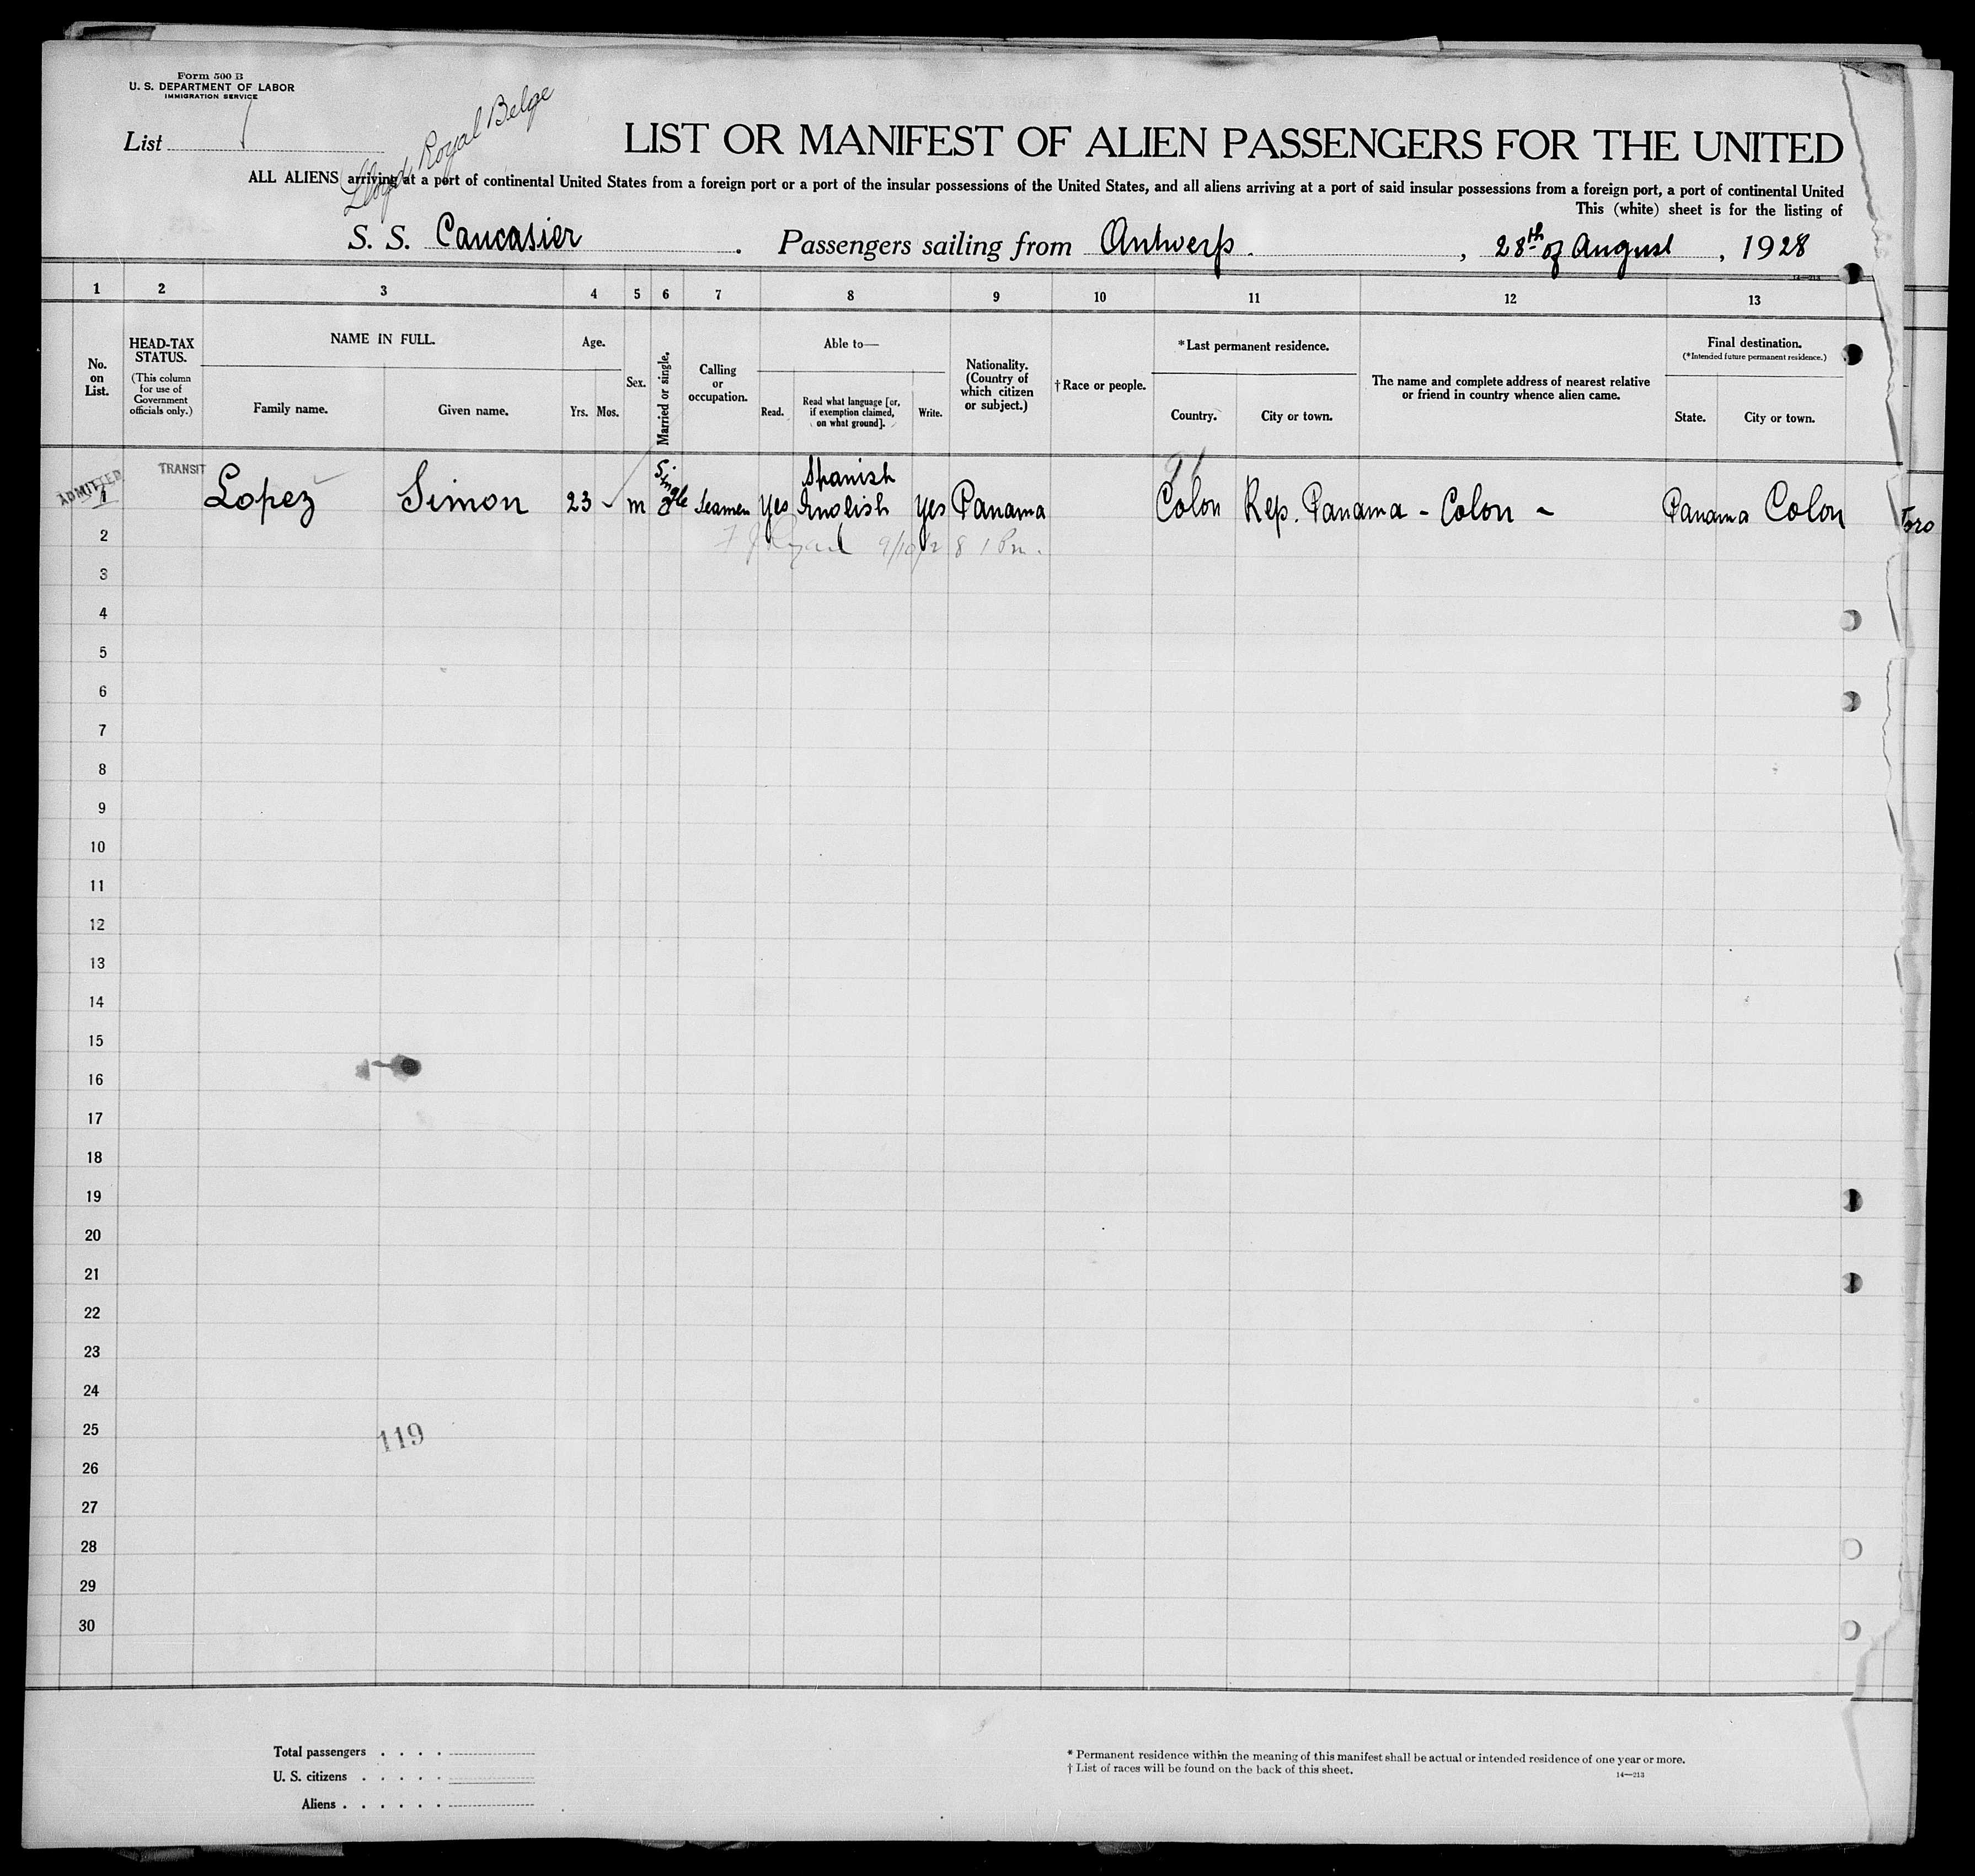 Form 500 B
U. S. DEPARTMENT OF LABOR
IMMIGRATION SERVICE
List
Lloyd Royal Belge
LIST OR MANIFEST OF ALIEN PASSENGERS FOR THE UNITED
ALL ALIENS arriving at a port of continental United States from a foreign port or a port of the insular possessions of the United States, and all aliens arriving at a port of said insular possessions from a foreign port, a port of continental United
This (white) sheet is for the listing of
S. S. Caucasier . Passengers sailing from Antwerp. , 28th of August , 1928
14—213
1 2 3 4 5 6 7 8 9 10 11 12 13
No. on List.
HEAD-TAX STATUS.
(This column for use of Government officials only.)
NAME IN FULL.
Family name. Given name.
Age.
Yrs. Mos.
Sex.
Married or single.
Calling or occupation.
Able to—
Read. Read what language [or, if exemption claimed, on what ground]. Write.
Nationality. (Country of which citizen or subject.)
†Race or people.
*Last permanent residence.
Country. City or town.
The name and complete address of nearest relative or friend in country whence alien came.
Final destination.
(*Intended future permanent residence.)
State. City or town.
ADMITTED 1 TRANSIT Lopez Simon 23 - m Single Seamen Yes Spanish English Yes Panama Colon Rep. Panama - Colon - Panama Colon
Toro
2 9/10/28 1 Pm.
3
4
5
6
7
8
9
10
11
12
13
14
15
16
17
18
19
20
21
22
23
24
25
119
26
27
28
29
30
Total passengers . . . .
U. S. citizens . . . . .
Aliens . . . . . .
* Permanent residence within the meaning of this manifest shall be actual or intended residence of one year or more.
† List of races will be found on the back of this sheet.
14—213